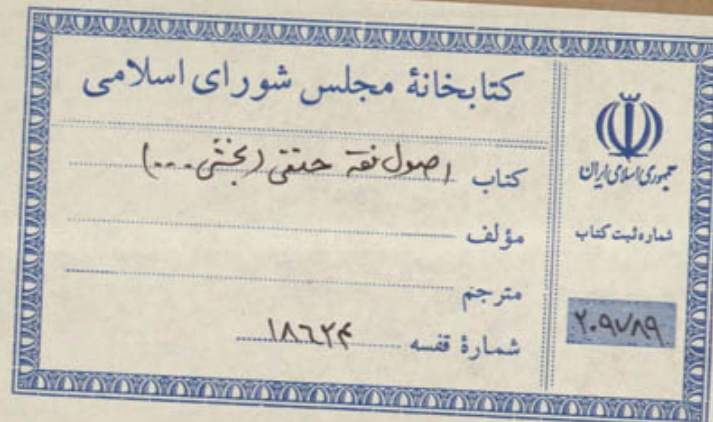 کتابخانهٔ مجلس شورای اسلامی
کتاب اصول فقه حنفی (بخشی ...)
مؤلف
مترجم
شمارهٔ قفسه ۱۸۶۲۴
جمهوری اسلامی ایران
شماره ثبت کتاب
۲۰۹۷۸۹